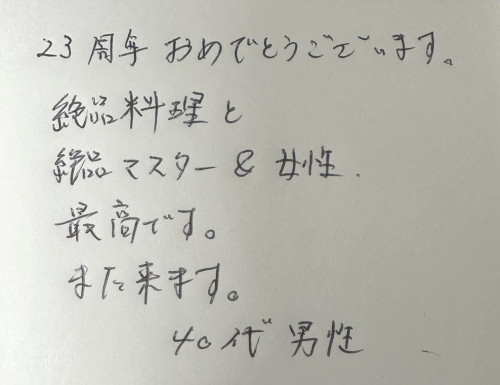 23周年 おめでとうございます。
絶品料理と
絶品マスター & 女性.
最高です。
また来ます。
40代 男性